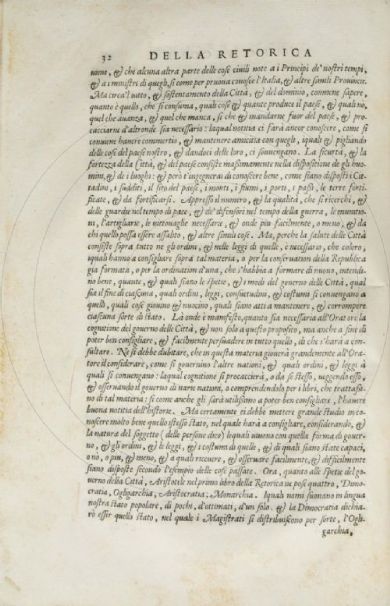 32 DELLA RETORICA
nome, & che alcuna altra parte delle cose ciuili note a i Principi de' nostri tempi,
& a i ministri di quegli, si come per pruoua conosce l'Italia, & altre simili Prouincie.
Ma circa'l uitto, & sostentamento della Città, & del dominio, conuiene sapere,
quanto è quello, che si consuma, quali cose & quante produce il paese, & quali nò,
quel che auanza, & quel che manca, si che & mandarne fuor del paese, & pro-
cacciarn d'altronde sia necessario: laqual notitia ci farà ancor conoscere, come si
conuiene hauere commertio, & mantenere amicitia con quegli, iquali & pigliando
delle cose del paese nostro, & dandoci delle loro, ci souuengano. La sicurtà, & la
fortezza della Città, & del paese consiste massimamente nella dispositione de gli huo-
mini, & de i luoghi: & però c'ingegnerai di conoscere bene, come siano disposti i Cit-
tadini, i sudditi, il sito del paese, i monti, i fiumi, i porti, i passi, le terre forti-
ficate, & da fortificarsi. Appresso il numero, & la qualità, che si ricerchi, &
delle guardie nel tempo di pace, & de' difensori nel tempo della guerra, le munitio-
ni, l'artigliarie, le uettouaglie necessarie, & onde piu facilmente, o meno, & da
chi quello possa essere assalito, & altre simili cose. Ma, perche la salute delle Città
consiste sopra tutto ne gli ordini, & nelle leggi di quelle, è necessario, che coloro,
iquali hanno a consigliare sopra tal materia, o per la conseruation della Republica
gia formata, o per la ordination d'una, che s'habbia a formare di nuouo, intenda-
no bene, quante, & quali siano le spetie, & i modi del gouerno delle Città, qual
sia il fine di ciascuna, quali ordini, leggi, consuetudini, & costumi si conuengano a
quello, quali cose giouino & nuocino, quali siano atti a mantenere, & corrompere
ciascuna sorte di stato. Là onde è manifesto, quanto sia necessaria all'Oratore la
cognitione del gouerno delle Città, & non solo a questo proposito, ma anche a fine di
poter ben consigliare, & facilmente persuadere in tutto quello, di che s'harà a con-
sultare. Ne si debbe dubitare, che in questa materia giouerà grandemente all'Ora-
tore il considerare, come si gouernino l'altre nationi, & quali ordini, & leggi à
quali si conuengano: laqual cognitione si procaccierà, o da se stesso, ueggendo esso,
& osseruando il gouerno di uarie nationi, o comprendendolo per i libri, che trattasse-
no di tal materia: si come anche gli sarà utilissimo a poter ben consigliare, l'hauere
buona notitia dell'historie. Ma certamente ci debbe mettere grande studio in co-
noscere molto bene quello stesso stato, nel quale harà a consigliare, considerando, &
la natura del soggetto (delle persone dico) lequali uiuono con quella forma di gouer-
no, & gli ordini, & le leggi, & i costumi di quelle, & di quali siano state capaci,
o nò, o piu, & meno, & a quali riceuere, & osseruare facilmente, & difficilmente
siano disposte secondo l'esempio delle cose passate. Ora, quanto alle spetie del go-
uerno della Città, Aristotele nel primo libro della Retorica ne pose quattro, Dimo-
cratia, Oligharchia, Aristocratia, Monarchia. Iquali nomi suonano in lingua
nostra stato popolare, di pochi, d'ottimati, d'un solo. & la Dimocratia dichia-
rò esser quello stato, nel quale i Magistrati si distribuiscono per sorte, l'Oli-
garchia,